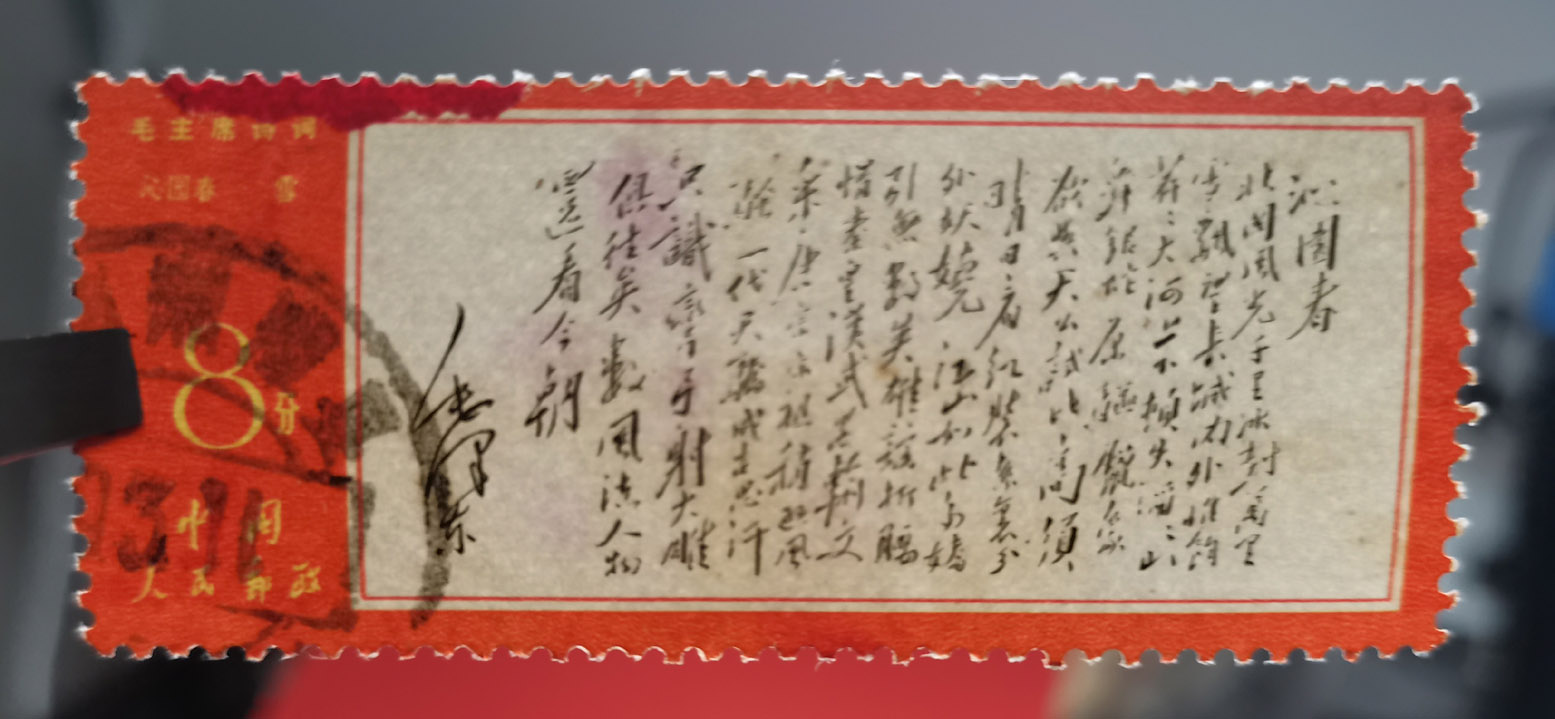 毛主席诗词
沁园春 雪
8分
中国
人民邮政
沁園春
北國風光千里冰封萬里
雪飄望長城内外惟餘
莽々大河上下頓失滔々山
舞銀蛇原驅蠟象
欲與天公試比高須
晴日看红裝素裹分
外妖嬈江山如此多嬌
引無數英雄競折腰
惜秦皇漢武略輸文
采唐宗宋祖稍遜風
騷一代天驕成吉思汗
只識彎弓射大雕
俱往矣數風流人物
還看今朝
毛澤東